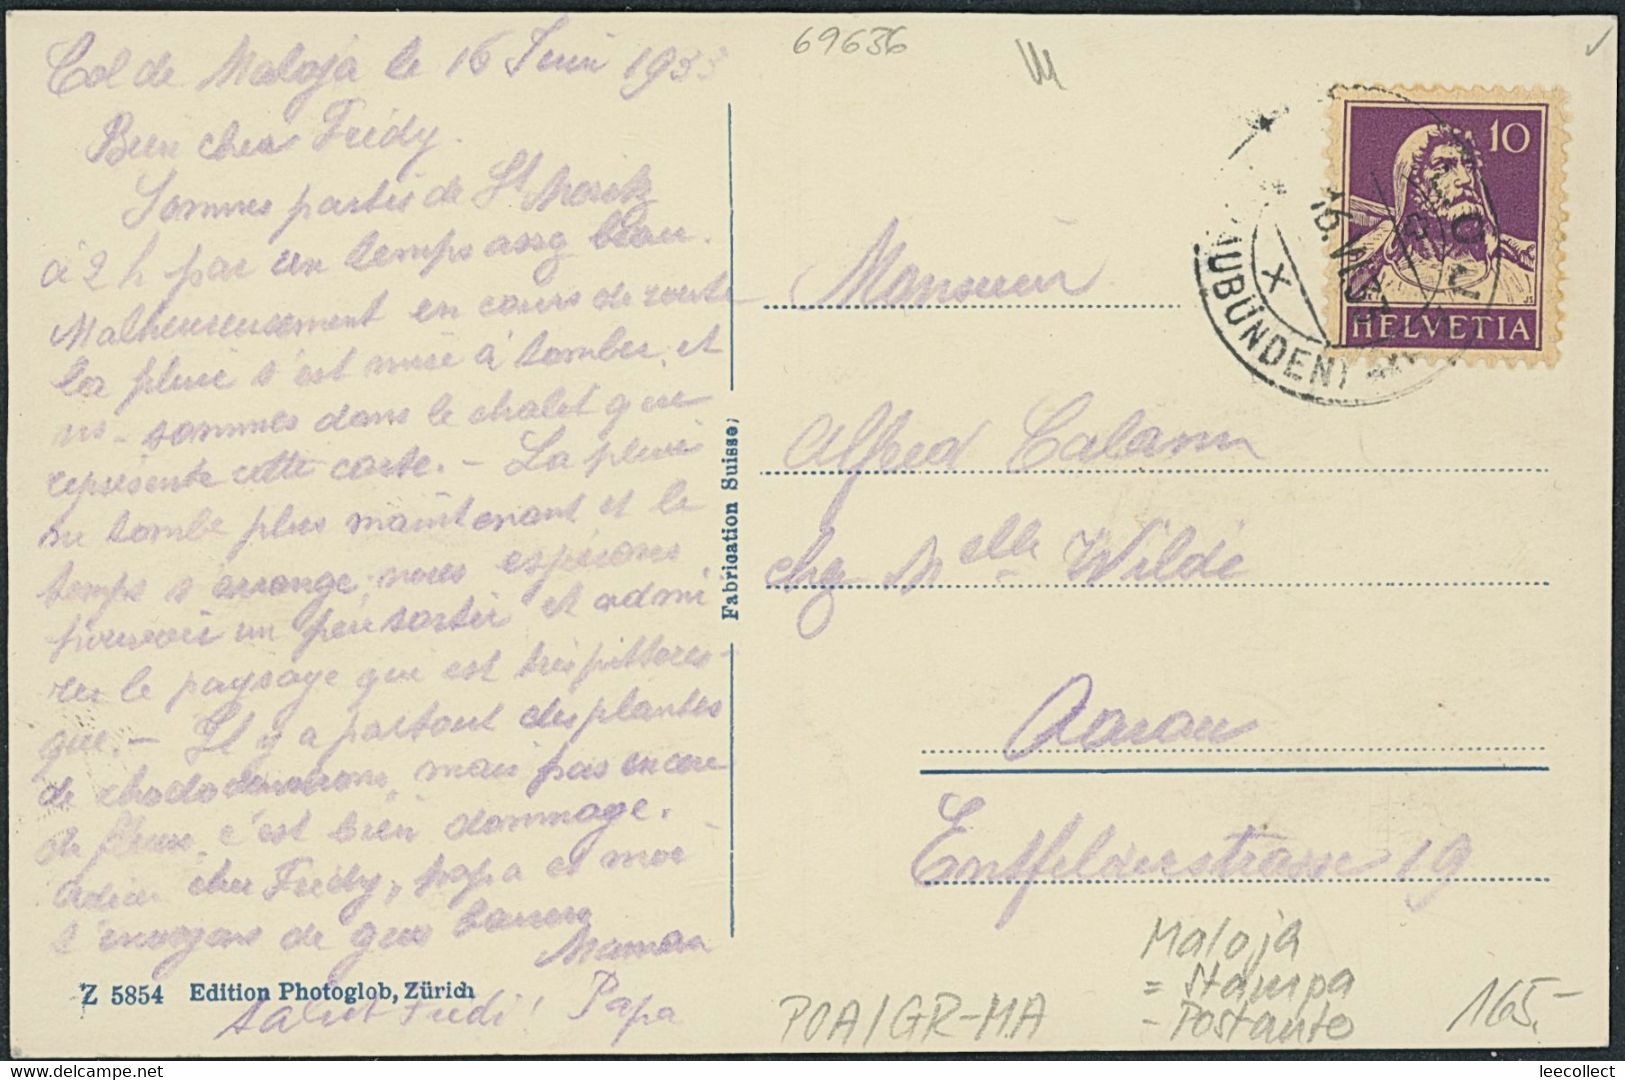 69636
Col de Maloja le 16 Juin 1933
Bien cher Frédy.
Sommes partis de St Moritz
à 2 h par un temps assez beau.
Malheureusement en cours de route
la pluie s'est mise à tomber et
ns. sommes dans le chalet que
représente cette carte. - La pluie
ne tombe plus maintenant et le
temps s'arrange; nous espérons
pouvoir un peu sortir et admi
rer le paysage qui est très pittores-
que. - Il y a partout des plantes
de rhododendrons, mais pas encore
de fleurs, c'est bien dommage.
Adieu cher Frédy, papa et moi
t'envoyons de gros baisers
Maman
Z 5854 Edition Photoglob, Zürich
Salut Fredi! Papa
Fabrication Suisse;
10
HELVETIA
16.VI.33
UBÜNDEN)
X
Monsieur
Alfred Calame
chez Melle Wilde
Aarau
Entfelderstrasse 19
Maloja
= Stampa
- Postauto
POA/GR-MA
165.-
www.delcampe.net
leecollect